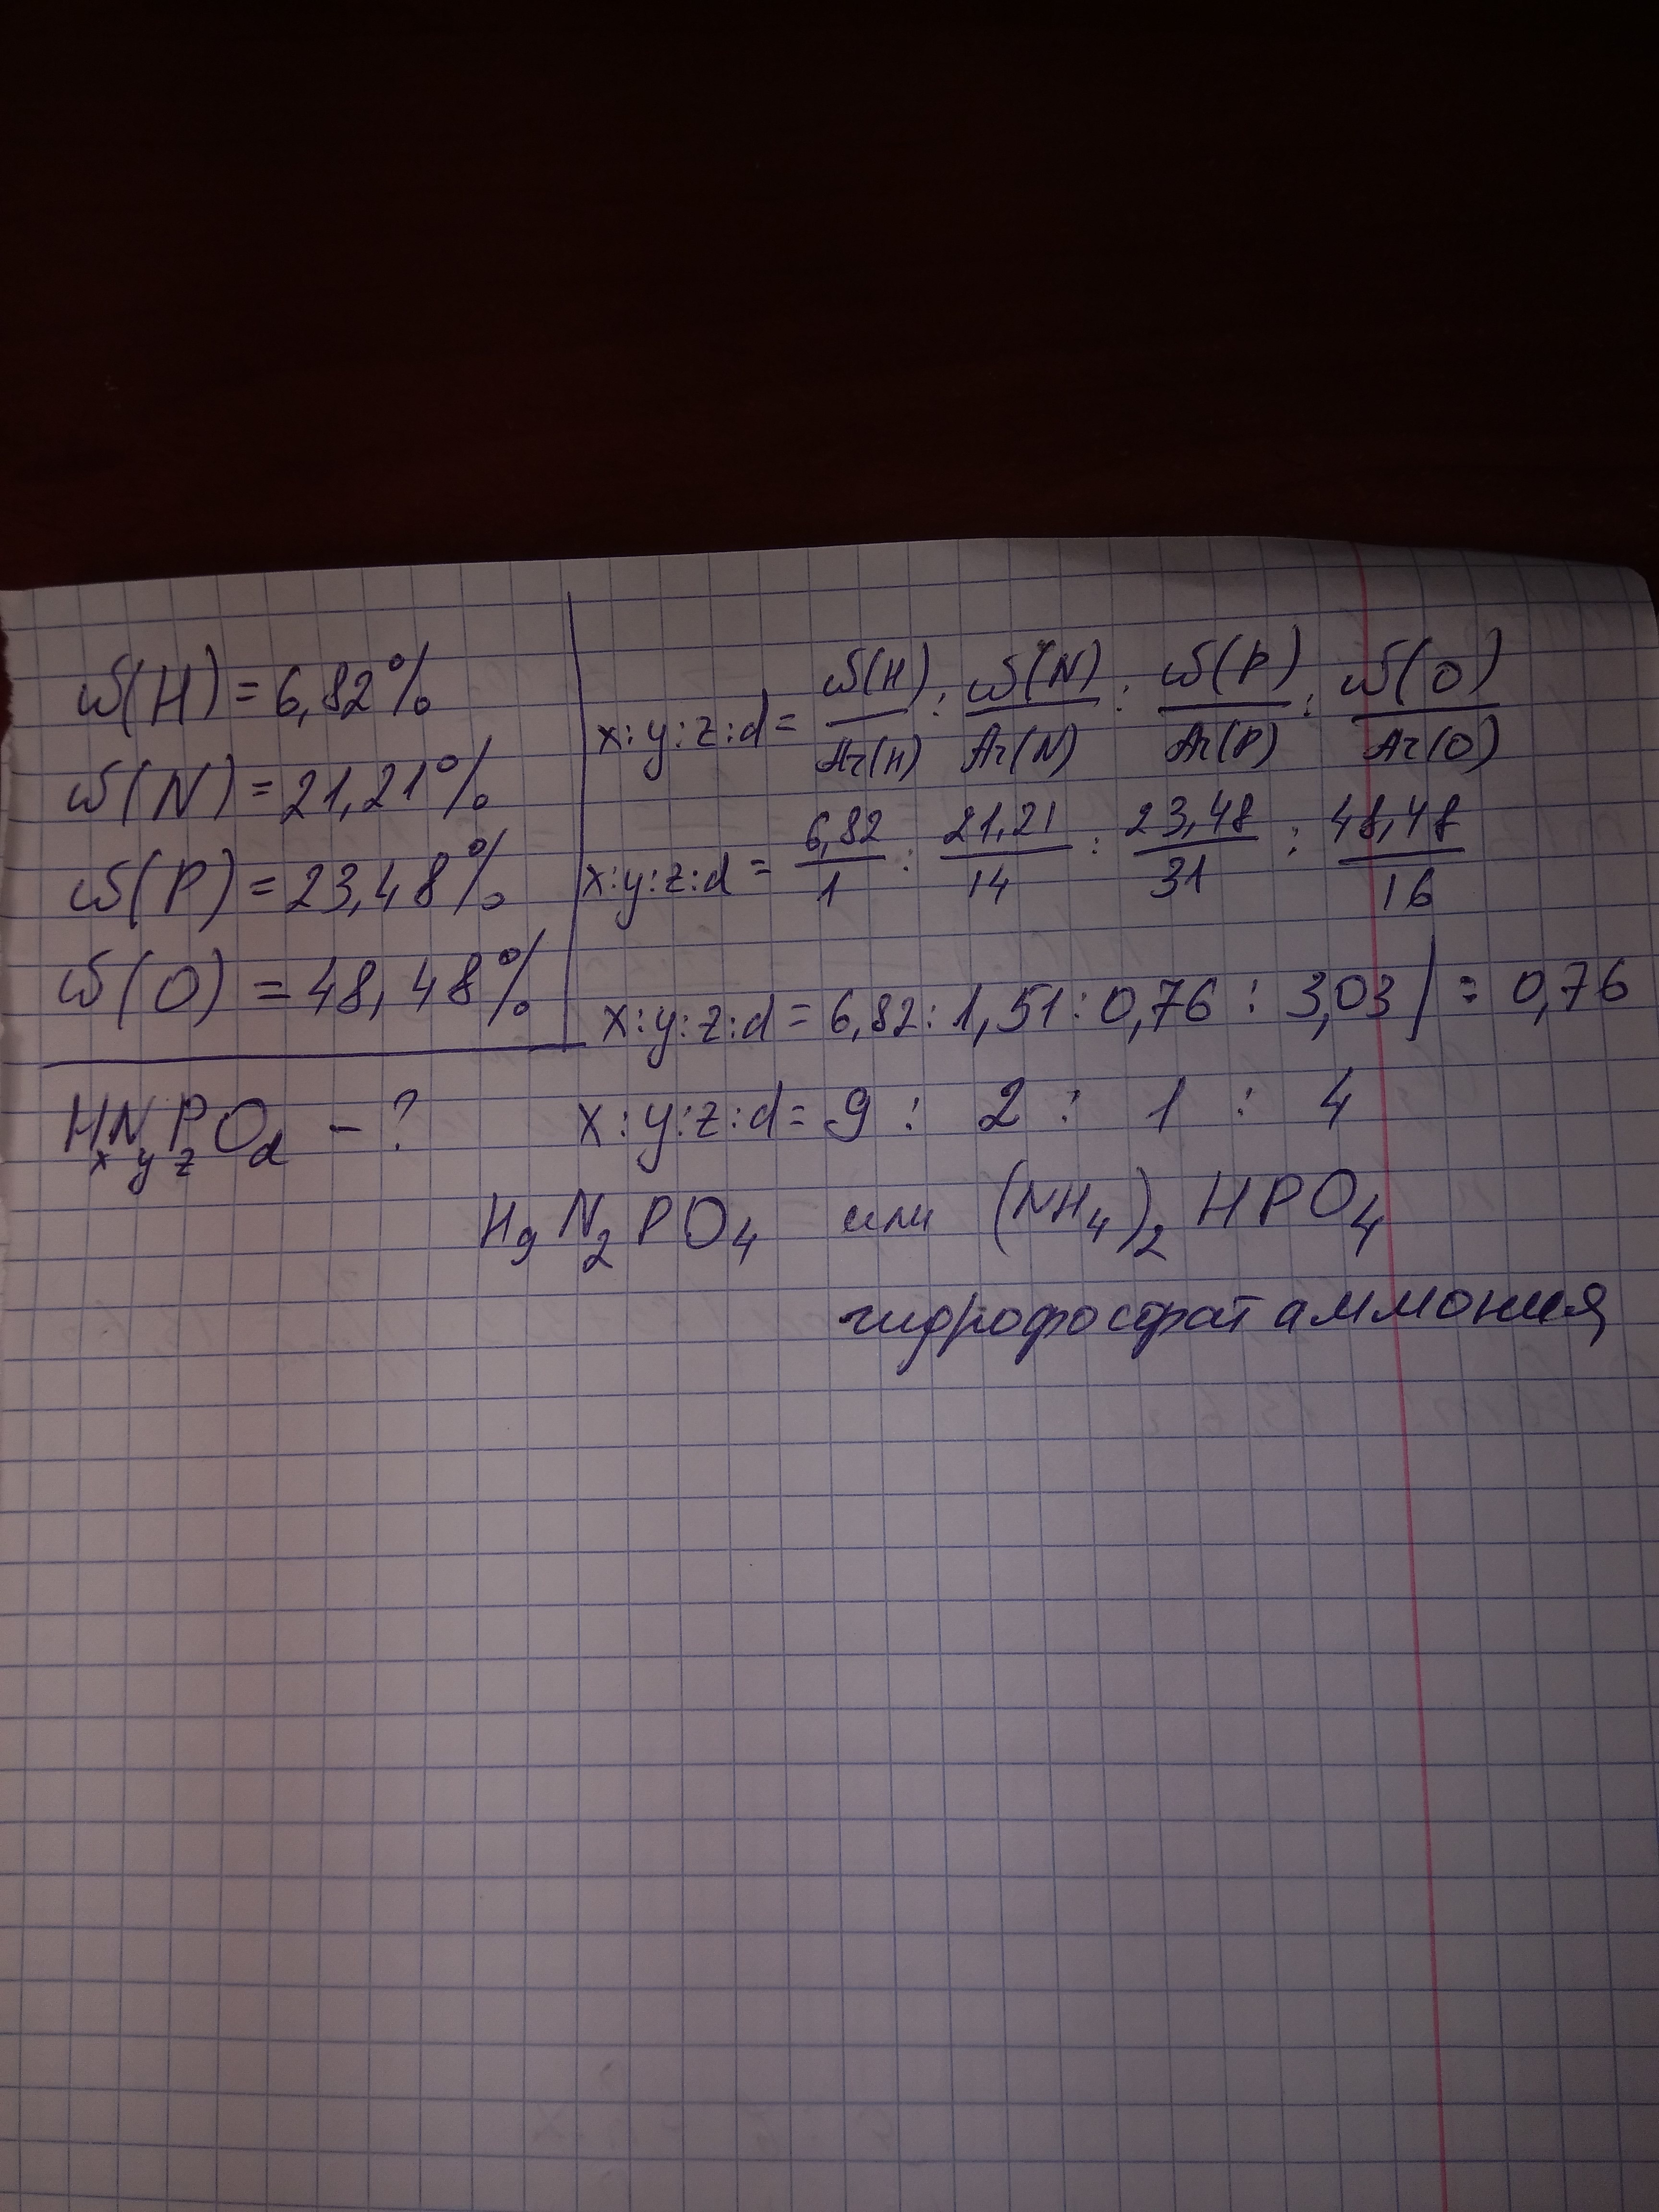 ω(H) = 6,82%
ω(N) = 21,21%
ω(P) = 23,48%
ω(O) = 48,48%
HxNyPzOd - ?
x:y:z:d = ω(H)/Ar(H) : ω(N)/Ar(N) : ω(P)/Ar(P) : ω(O)/Ar(O)
x:y:z:d = 6,82/1 : 21,21/14 : 23,48/31 : 48,48/16
x:y:z:d = 6,82 : 1,51 : 0,76 : 3,03 | : 0,76
x:y:z:d = 9 : 2 : 1 : 4
H₉N₂PO₄ или (NH₄)₂HPO₄
гидрофосфат аммония